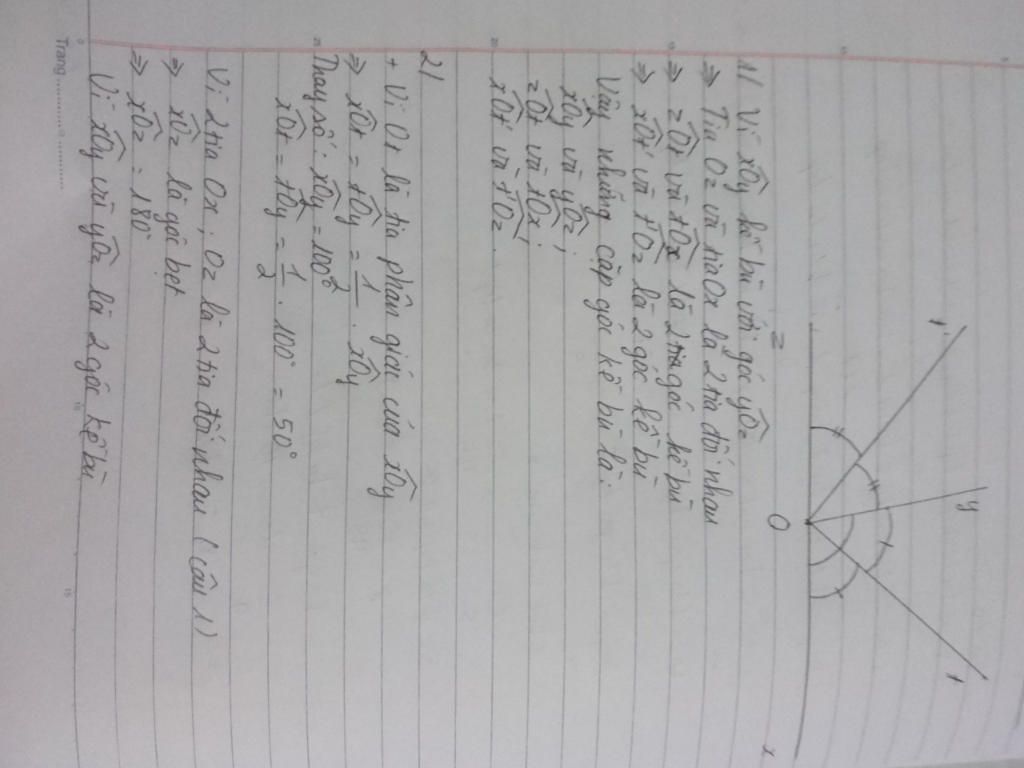 t' y t
z O x
1/ Vì x̂Oy kề bù với góc ŷOz
⇒ Tia Oz và tia Ox là 2 tia đối nhau
⇒ ẑOt và t̂Ox là 2 góc kề bù
⇒ x̂Ot' và t̂'Oz là 2 góc kề bù
Vậy những cặp góc kề bù là:
x̂Oy và ŷOz;
ẑOt và t̂Ox;
x̂Ot' và t̂'Oz.
2/
+ Vì Ot là tia phân giác của x̂Oy
⇒ x̂Ot = t̂Oy = 1/2 . x̂Oy
Thay số: x̂Oy = 100°
x̂Ot = t̂Oy = 1/2 . 100° = 50°
Vì 2 tia Ox, Oz là 2 tia đối nhau (câu 1)
⇒ x̂Oz là góc bẹt
⇒ x̂Oz = 180°
Vì x̂Oy và ŷOz là 2 góc kề bù
Trang